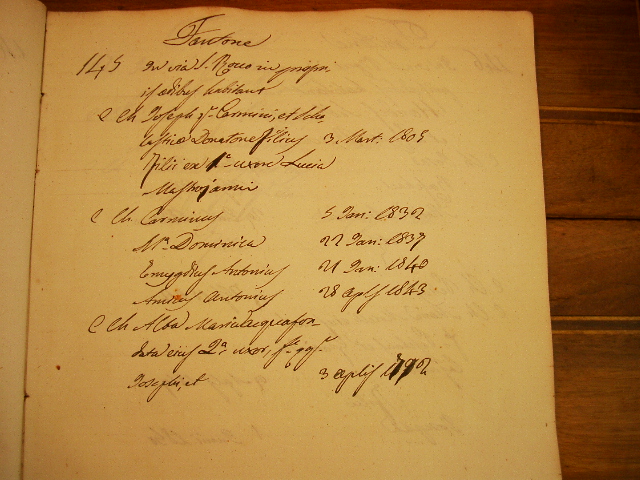 Fantone
145 In via S. Rocco in propri
is ædibus habitant
C Ch Joseph q.m Carmini, et Scho
lasticæ Donatone filius 3 Mart: 1805
Filii ex 1.a uxore Lucia
Mastrojanni
C Ch. Carminus 5 Jan: 1832
M.a Dominica 22 Jan: 1837
Emygdius Antonius 21 Jan: 1840
Amicus Antonius 28 Aplis 1843
C Ch Alba Maria
data ejus 2.a uxor, f.
Josephi, et 3 Aplis 1792